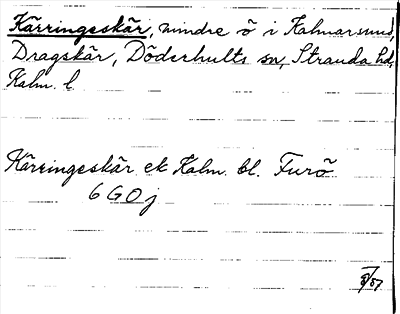 Kärringeskär, mindre ö i Kalmarsund,
Dragskär, Döderhults sn, Stranda hd,
Kalm. l.
Kärringeskär ek Kalm. bl. Furö
6 G 0 j